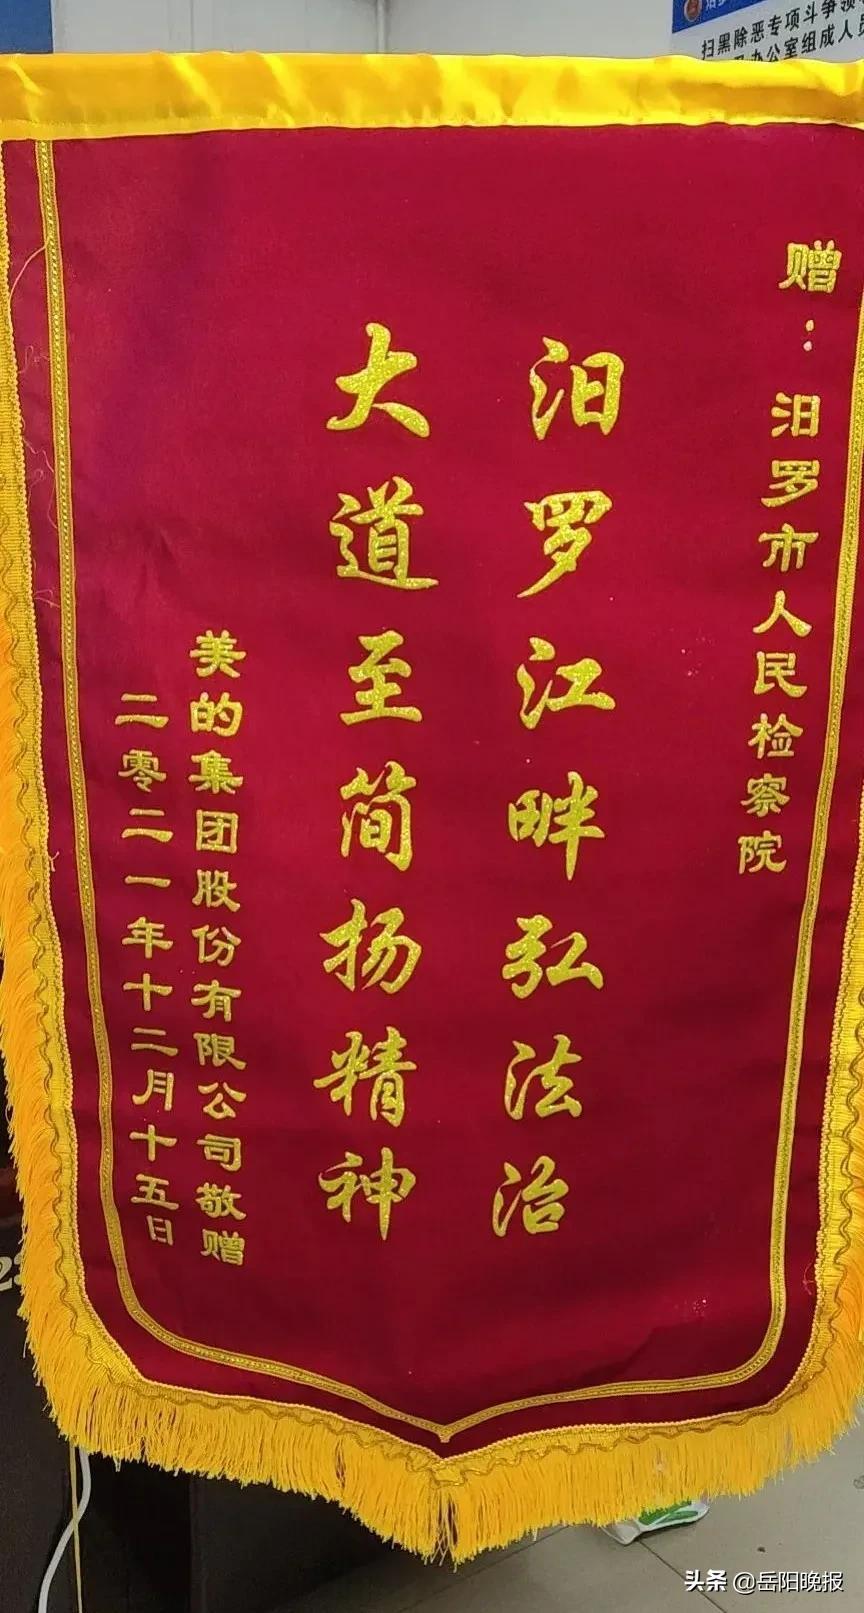 扫黑除恶专项斗争领
办公室组成人员
赠：汨罗市人民检察院
汨罗江畔弘法治
大道至简扬精神
美的集团股份有限公司敬赠
二零二一年十二月十五日
头条 @岳阳晚报